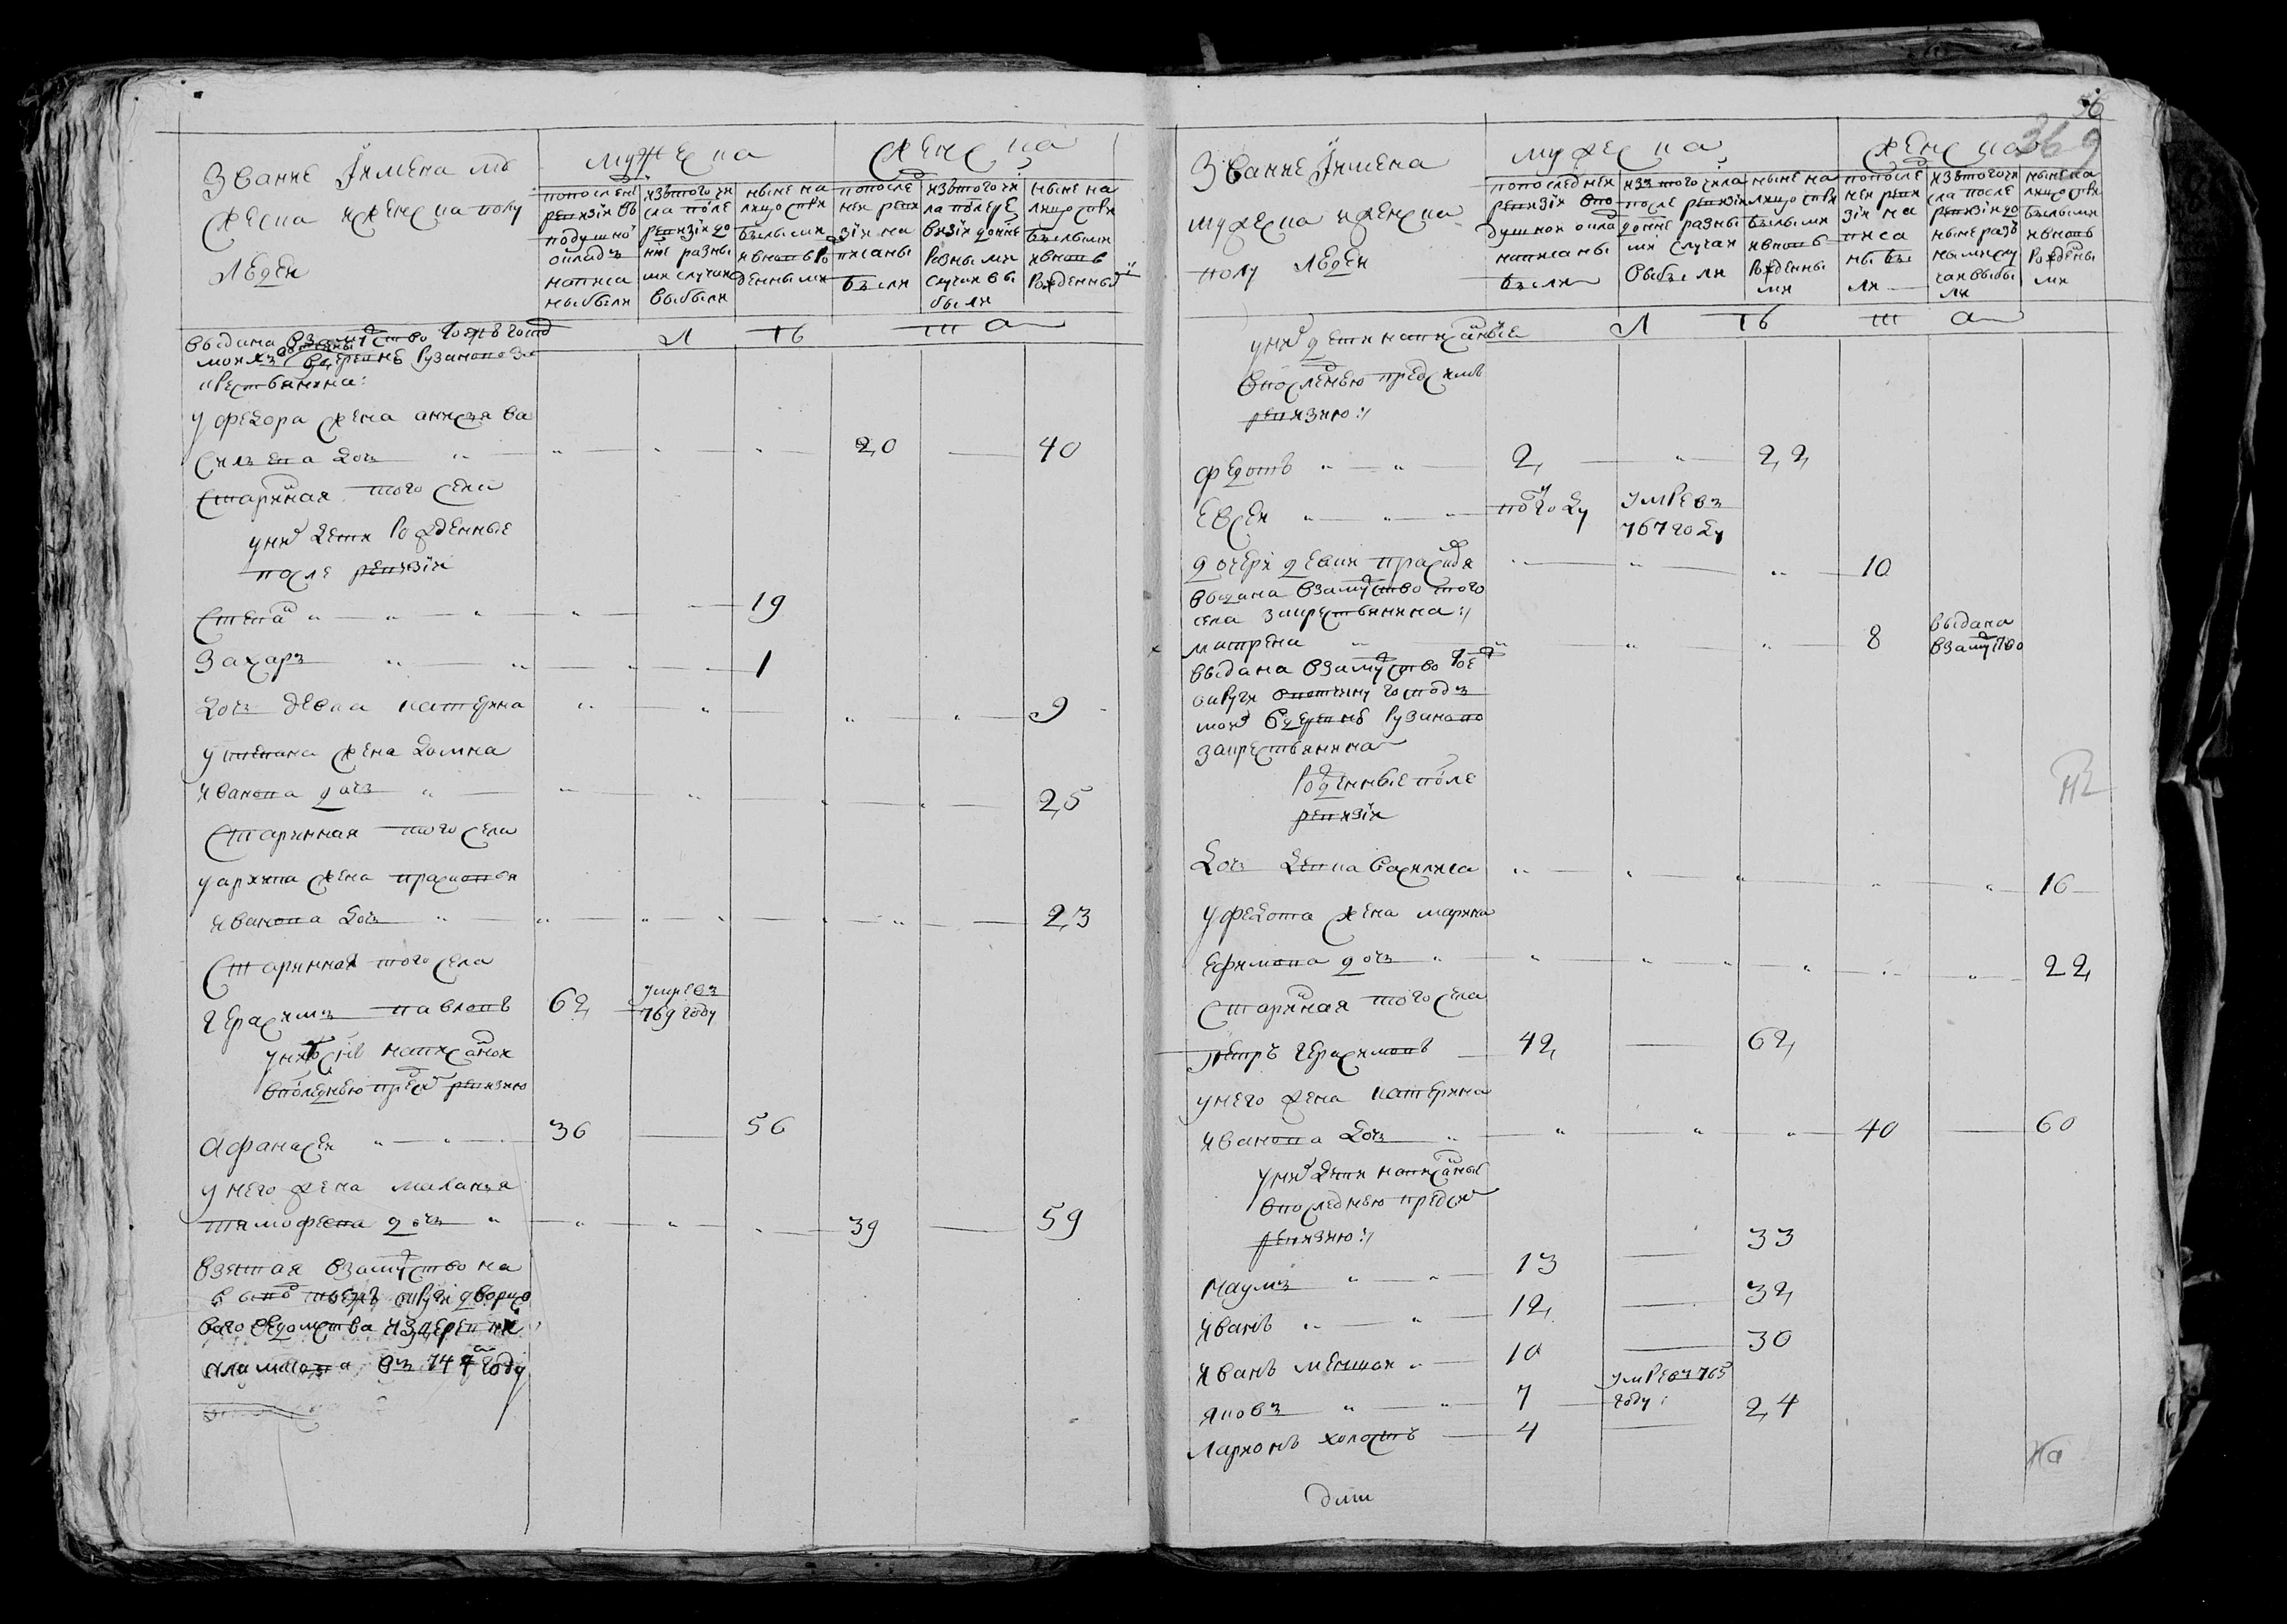 Звание и имена му
жеска и женска полу
людей
мужеска
женска
по последней
ревизии въ
подушной
окладъ
написа
ны были
изъ того чи
сла после
ревизии до
ныне разны
ми случаи
выбыли
ныне на
лицо с при
былыми
и вновь ро
жденными
по после
ней реви
зии на
писаны
были
изъ того чи
сла после ре
визии до ныне
разными
случаи вы
были
ныне на
лицо с при
былыми
и вновь
рожденными
лѣта
выдана в замужство
деревне Рузаново за
крестьянина:
у Федора жена Анна
дочь 20 40
старинная того села
у них дети рожденные
после ревизии
Степан 19
Захаръ 1
дочь девка Катерина 9
у Степана жена Домна
Иванова дочь 25
старинная того села
у Архипа жена Прасковья
Иванова дочь 23
старинная того села
Герасимъ Павловъ 62 умре въ
769 году
у них сын написанной
в последнею пред сим ревизию
Афанасей 36 56
у него жена Маланья
Тимофеева дочь 39 59
взятая в замужство
дворцо
ваго ведомства из деревни
въ 747 году
369
Звание и имена
мужеска и женска
полу людей
мужеска
женска
по последней
ревизии в по
душной окла
написаны
были
изъ того числа
после ревизии
до ныне разны
ми случаи
выбыли
ныне на
лицо с при
былыми
и вновь
рожденны
ми
по после
ней реви
зии на
писа
ны бы
ли
изъ того чи
сла после
ревизии до
ныне разъ
ными слу
чаи выбы
ли
ныне на
лицо с при
былыми
и вновь
рождены
ми
у них дети написанные
лѣта
в последнею пред симъ
ревизию:/
Федотъ 2 22
Евсей по году умре въ
767 году
дочери девки Прасковья 10
выдана в замужство того
села за крестьянина:/
Матрена 8 выдана
в замужство
выдана в замужство
округи вотчину господъ
деревне Рузаново
за крестьянина
рожденные после
ревизии
дочь девка Василиса 16
у Федота жена Марина
Ефимова дочь 22
старинная того села
Петръ Герасимовъ 42 62
у него жена Катерина
Иванова дочь 40 60
у них дети написаные
в последнею пред сим
ревизию:/
Наумъ 13 33
Иванъ 12 32
Иванъ меншой 10 30
Яковъ 7 умре въ 765
году:
Ларионъ холостъ 4 24